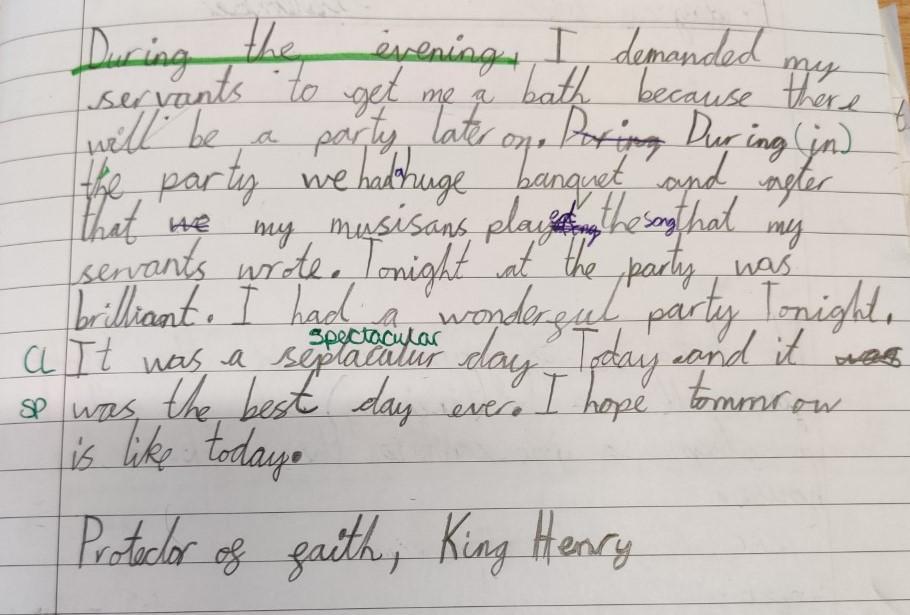 During the evening, I demanded my
servants to get me a bath because there
will be a party later on. During During (in)
the party we had a huge banquet and after
that we my musisans played the song that my
servants wrote. Tonight at the party was
brilliant. I had a wonderful party Tonight.
spectacular
CL It was a seplacalur day Today and it was
SP was the best day ever. I hope tommrow
is like today.
Protector of faith, King Henry